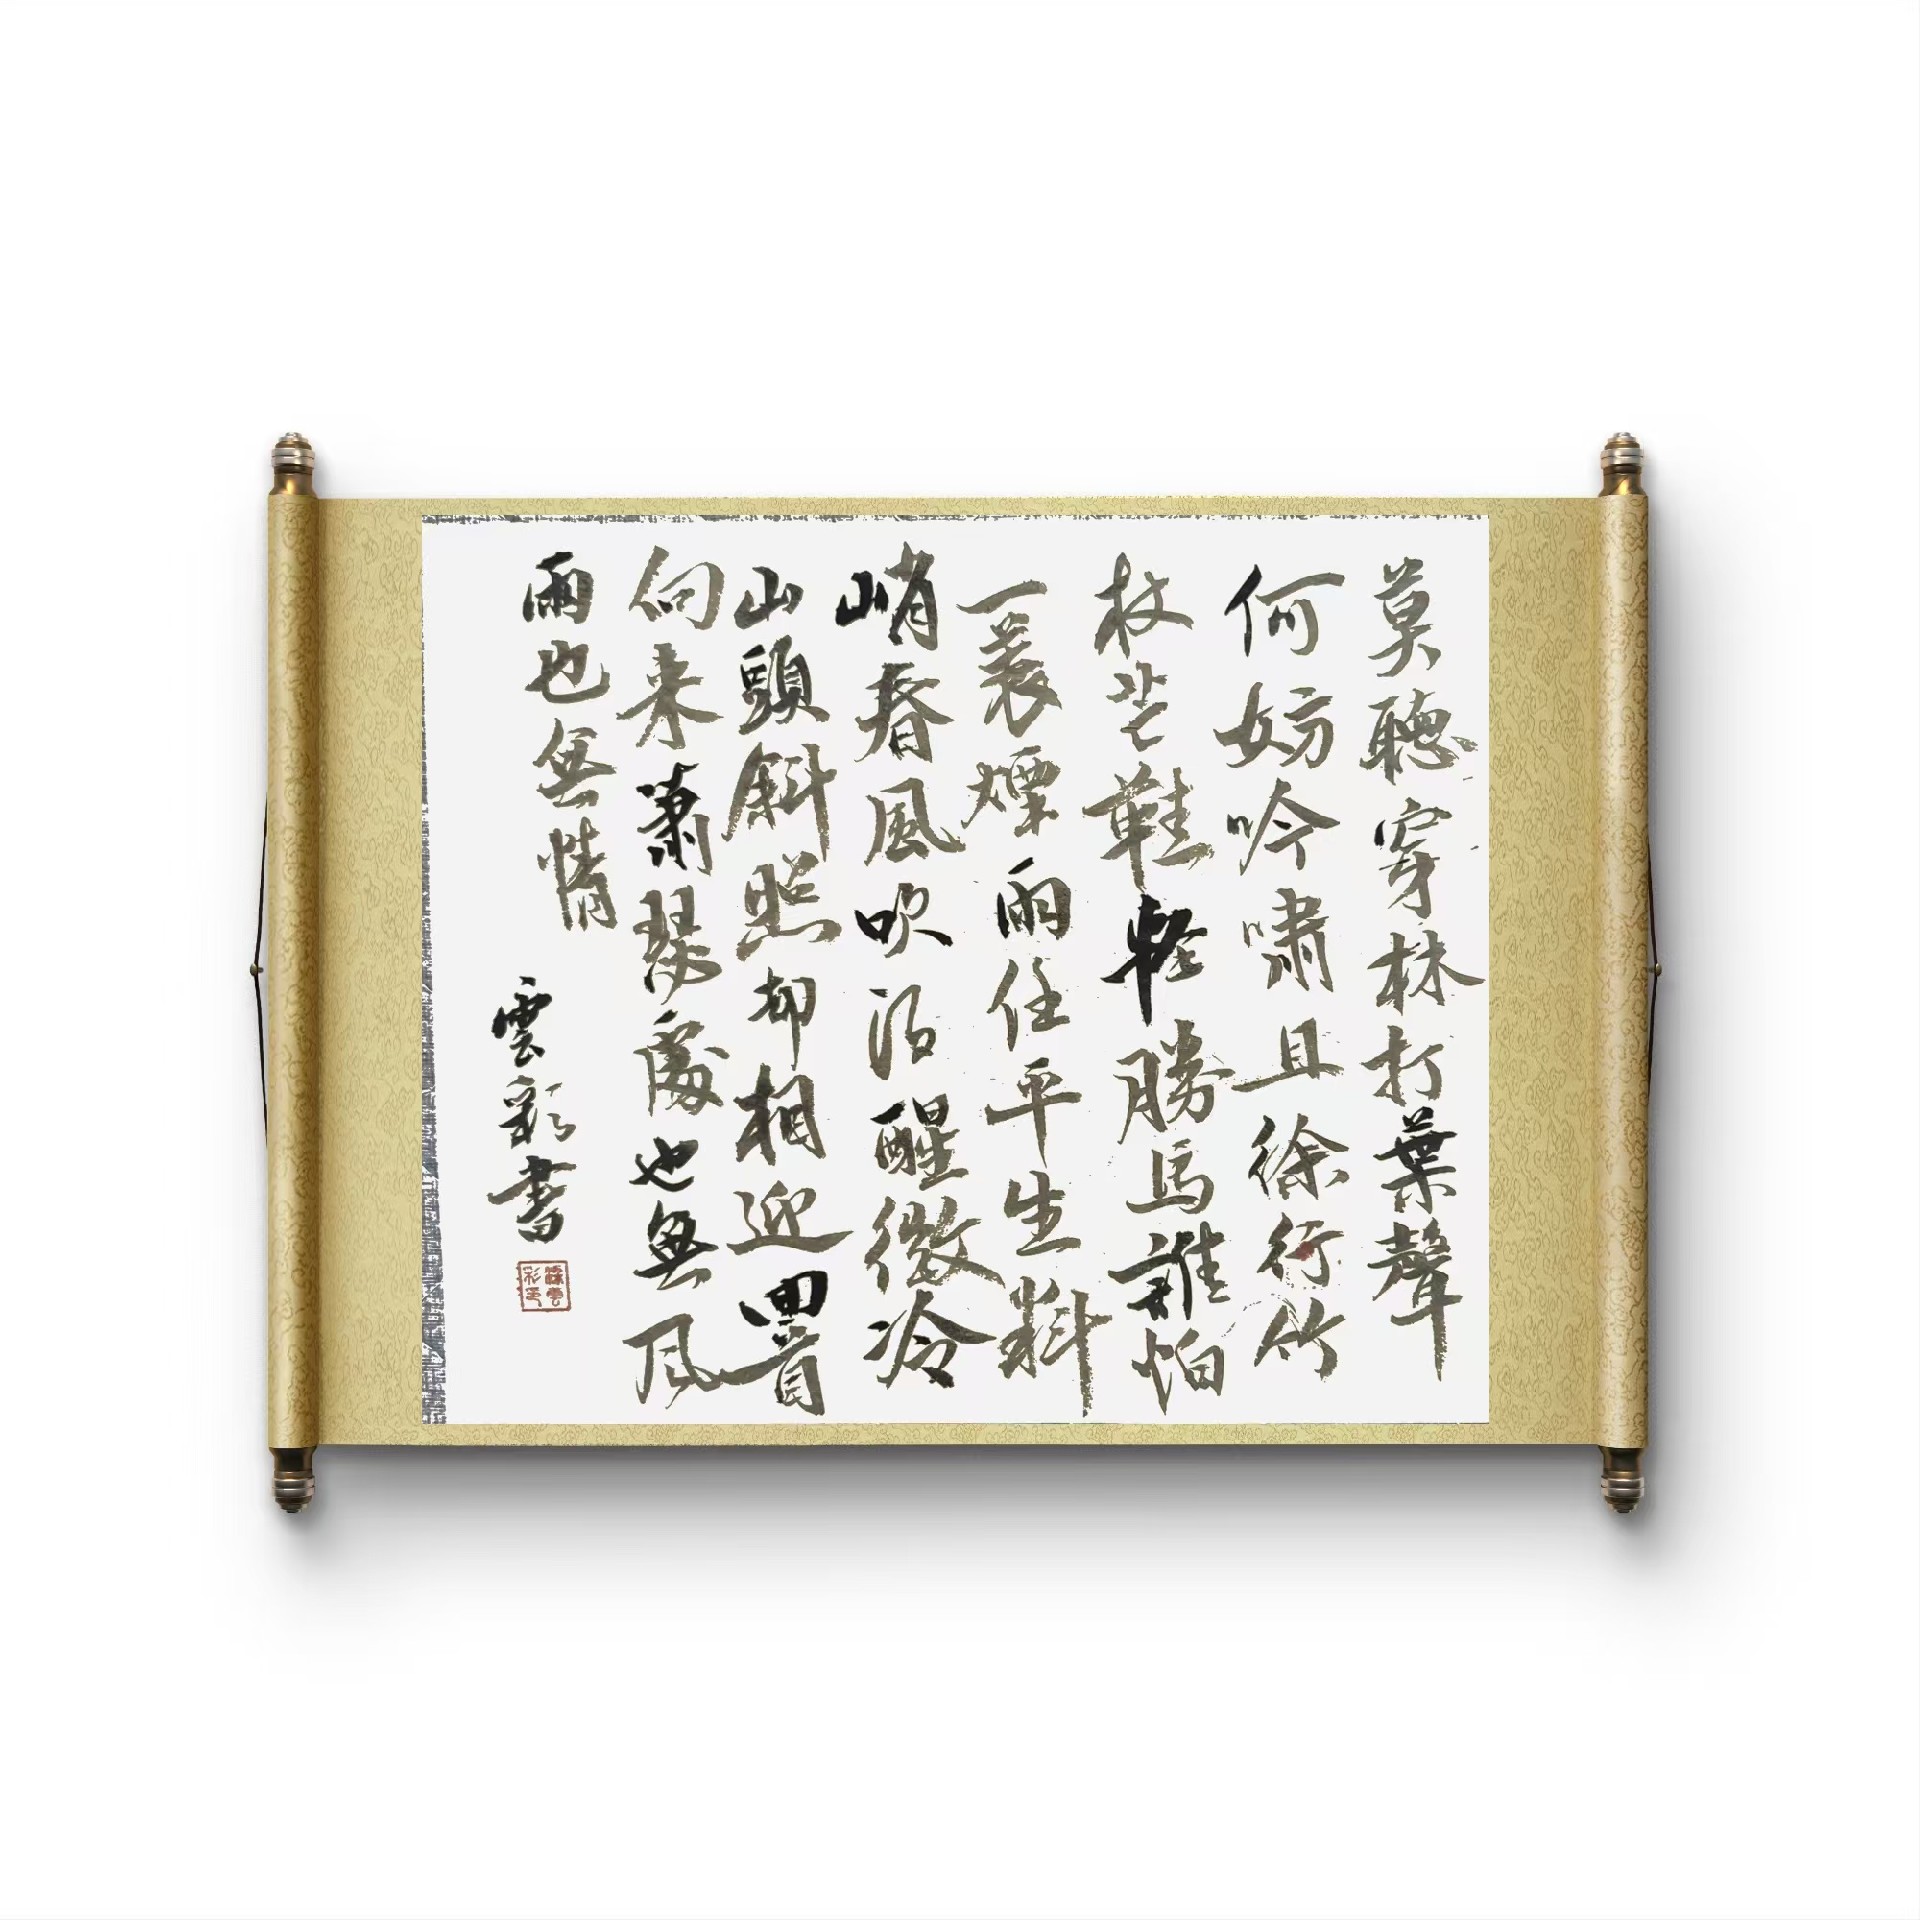 莫聽穿林打葉聲
何妨吟嘯且徐行竹
杖芒鞋輕勝馬誰怕
一蓑煙雨任平生料
峭春風吹酒醒微冷
山頭斜照却相迎回首
向来蕭瑟處也無風
雨也無情
雲彩書